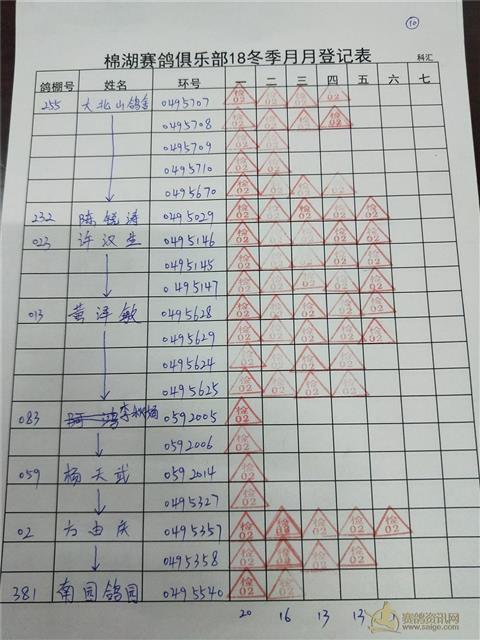 10
棉湖赛鸽俱乐部18冬季月月登记表
科汇
鸽棚号 姓名 环号 一 二 三 四 五 六 七
255 大北山鸽舍 0495707 检02 检02 检02 检02
0495708 检02 检02 检02 检02
0495709 检02 检02
0495710 检02 检02
0495670 检02 检02 检02 检02
232 陈锐涛 0495029 检02 检02 检02 检02 检02
023 许汉生 0495146 检02 检02 检02 检02 检02
0495145 检02 检02 检02 检02 检02
0495147 检02 检02 检02 检02 检02
013 黄泽敏 0495628 检02 检02 检02 检02 检02
0495629 检02 检02 检02 检02 检02
0495624 检02 检02 检02 检02
0495625 检02 检02 检02 检02
083 0592005 检02
0592006 检02
059 杨天武 0592014 检02
0495327 检02
02 方由庆 0495357 检02 检02 检02 检02 检02 检02
0495358 检02 检02 检02 检02 检02
381 南园鸽园 0495540 检02 检02
20 16 13 13
赛鸽资讯网
www.saige.com